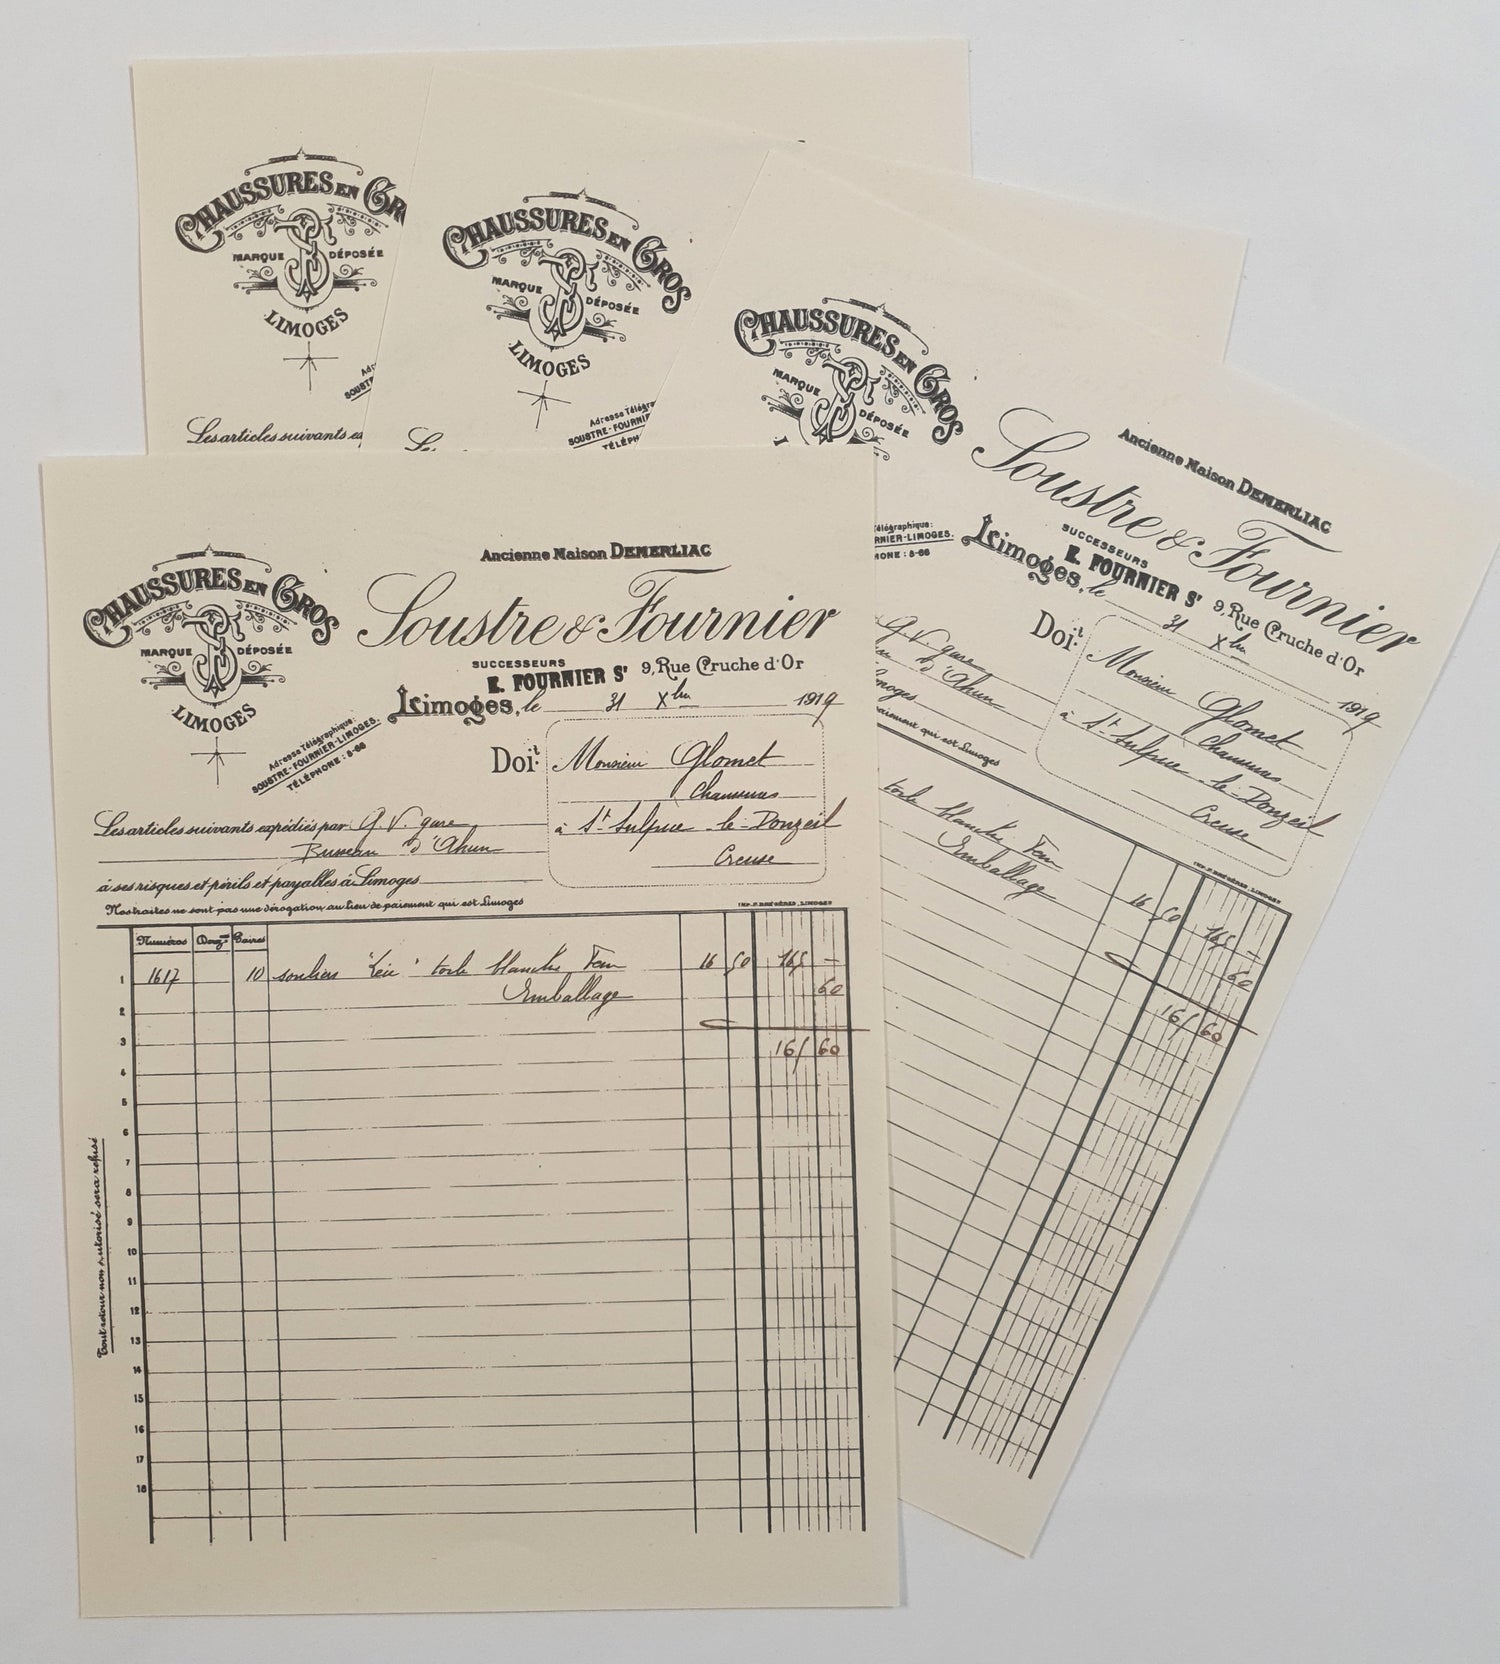 CHAUSSURES EN GR
MARQUE DÉPOSÉE
LIMOGES
SOUST
Les articles suivants ex
CHAUSSURES EN GROS
MARQUE DÉPOSÉE
LIMOGES
Adresse Télégr
SOUSTRE-FOURNI
TÉLÉPH
CHAUSSURES EN GROS
MARQUE DÉPOSÉE
Ancienne Maison DEMERLIAC
Soustre & Fournier
SUCCESSEURS
E. FOURNIER Sr 9, Rue Cruche d'Or
élégraphique:
RNIER-LIMOGES.
HONE: 8-66
Limoges, le 31 Xbre 1919
Doit
Monsieur Glomet
Chaussures
à St Sulpice le-Donzeil
Creuse
G. V. gare
d'Ahun
imoges
paiement qui est Limoges
toile blanche Fem 16 50 165 —
Emballage 60
165 60
IMP. P. DUMÉRIES, LIMOGES
CHAUSSURES EN GROS
MARQUE DÉPOSÉE
LIMOGES
Ancienne Maison DEMERLIAC
Soustre & Fournier
SUCCESSEURS
E. FOURNIER Sr 9, Rue Cruche d'Or
Limoges, le 31 Xbre 1919
Adresse Télégraphique:
SOUSTRE-FOURNIER-LIMOGES.
TÉLÉPHONE: 8-66
Doit: Monsieur Glomet
Chaussures
à St Sulpice le-Donzeil
Creuse
Les articles suivants expédiés par G. V. gare
Busseau d'Ahun
à ses risques et périls et payables à Limoges
Nos traites ne sont pas une dérogation au lieu de paiement qui est Limoges
Numéros Douz.nes Paires
1 1617 10 souliers toile blanche Fem 16 50 165 —
2 Emballage 60
3 165 60
4
5
6
7
8
9
10
11
12
13
14
15
16
17
18
Tout retour non autorisé sera refusé